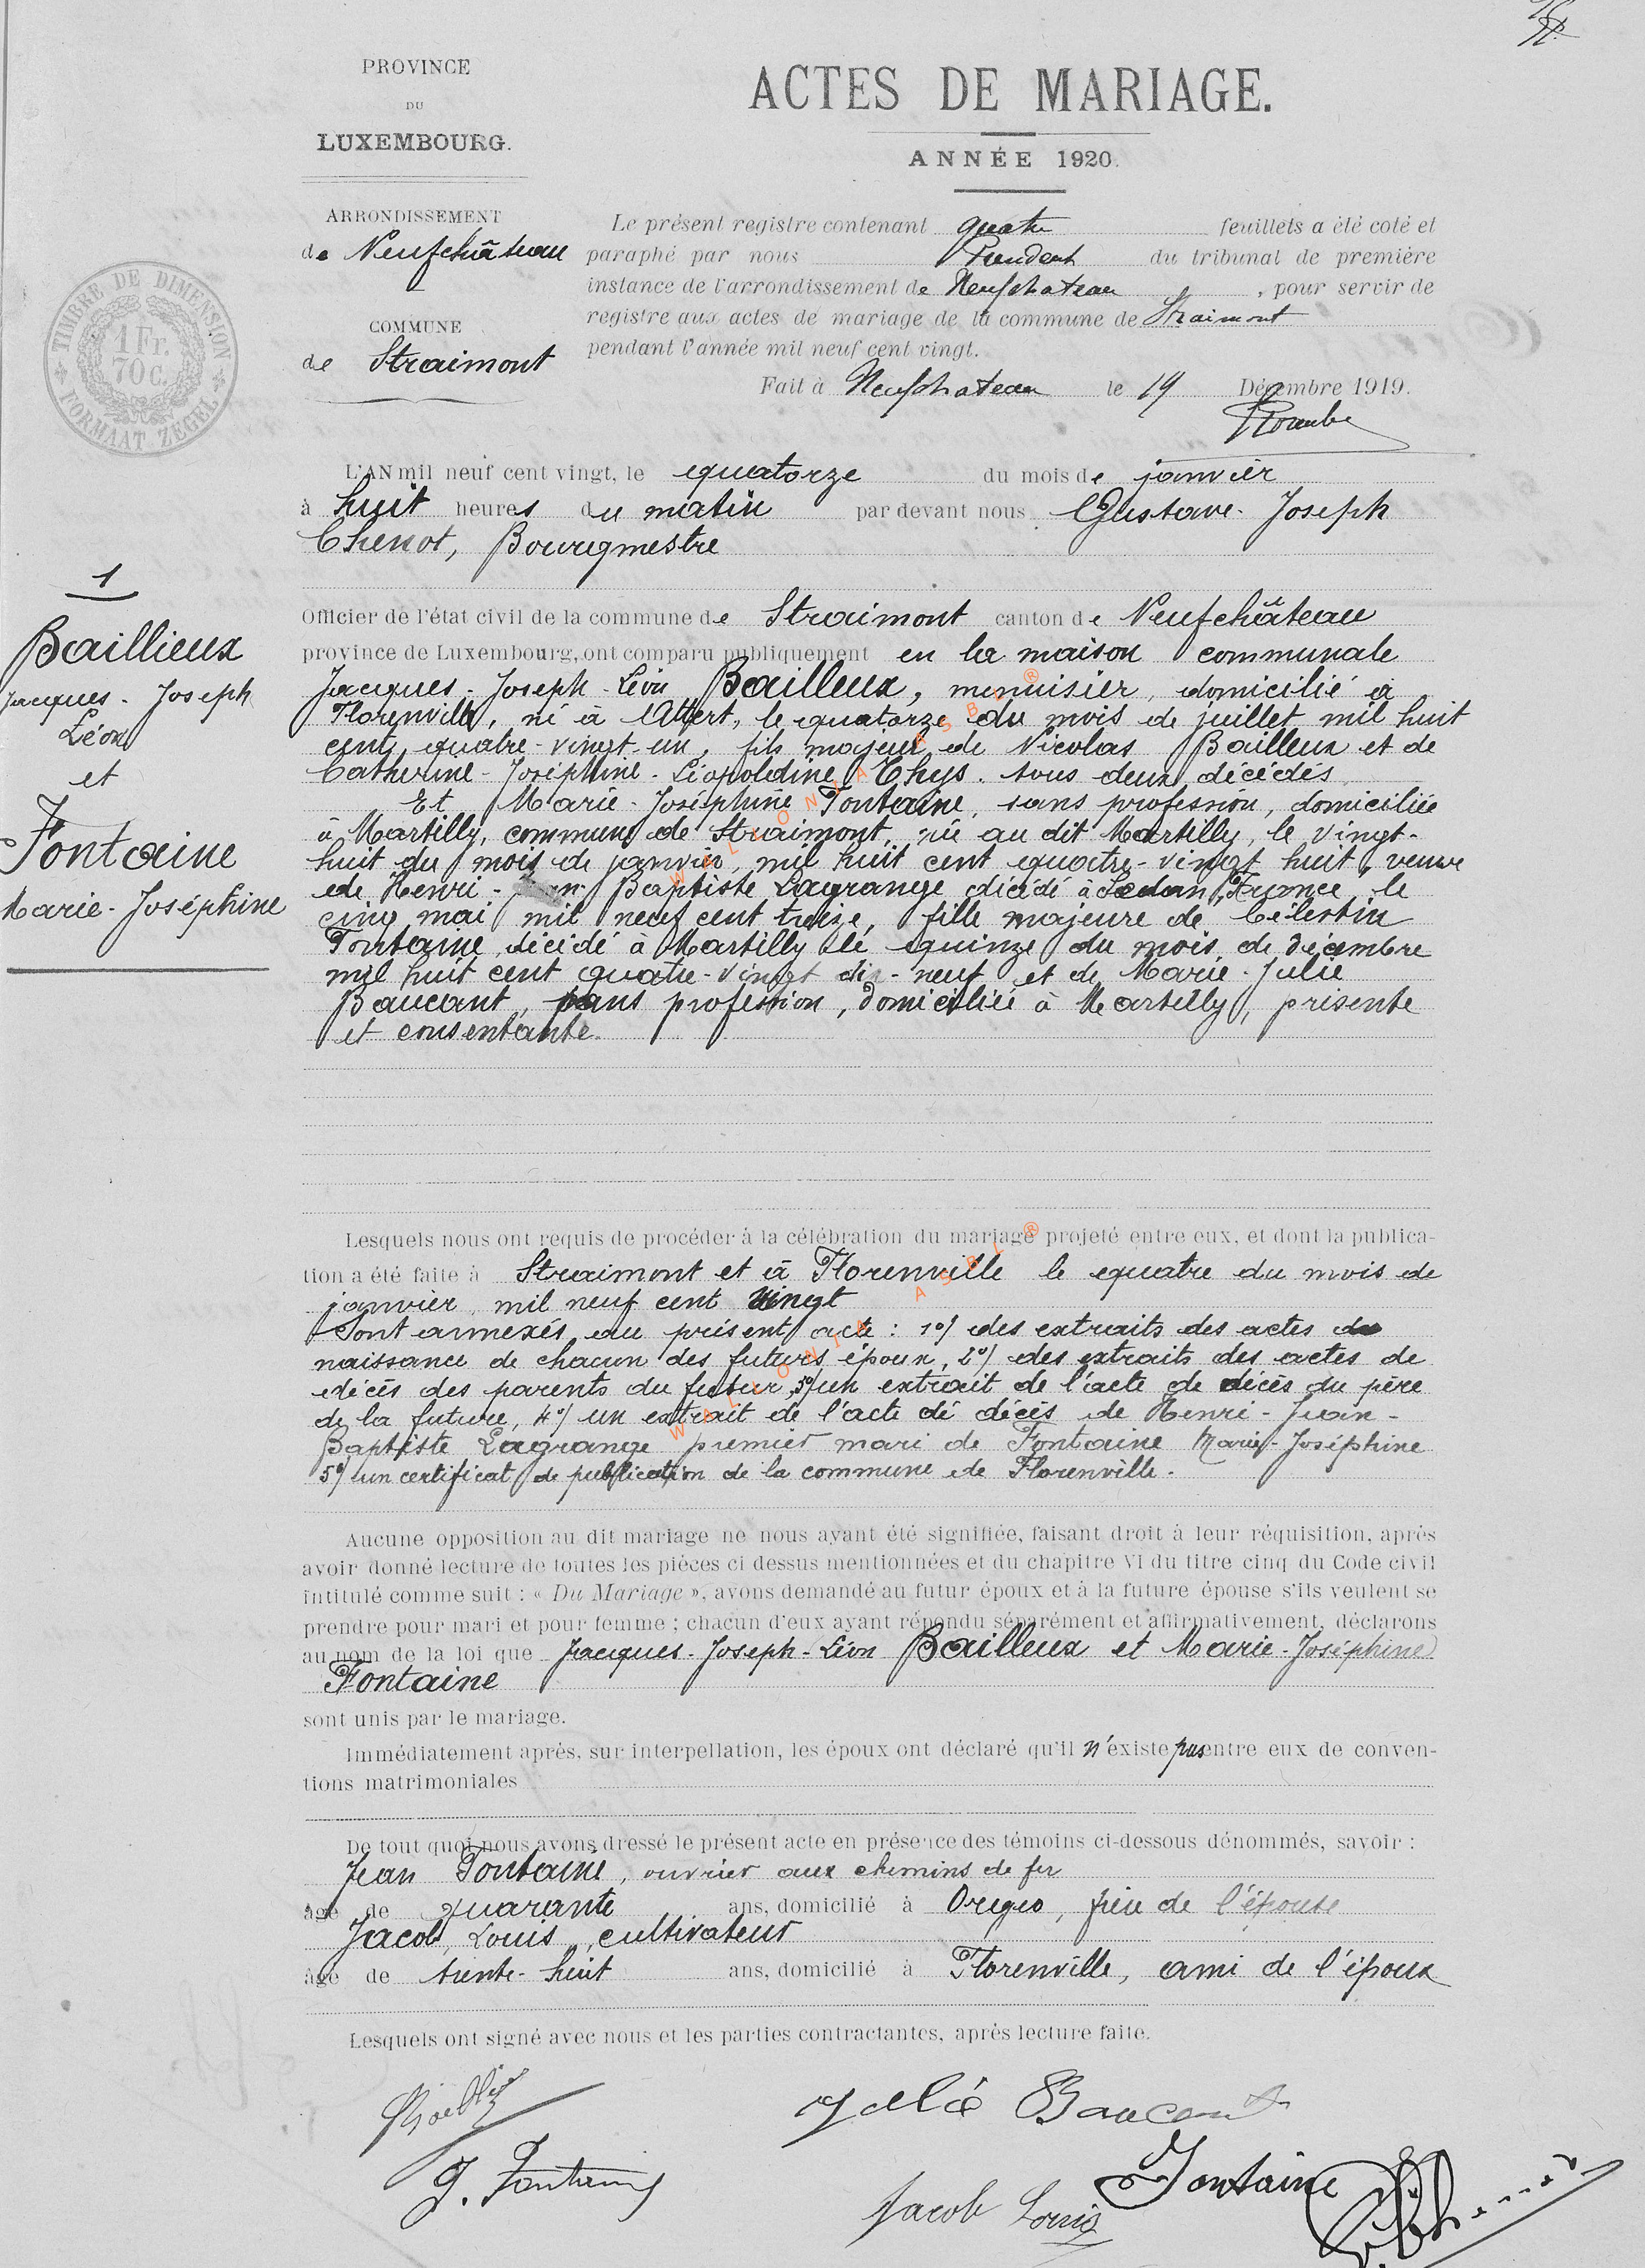 PROVINCE
DU
LUXEMBOURG.
ARRONDISSEMENT
de Neufchâteau
COMMUNE
de Straimont
TIMBRE DE DIMENSION
1 Fr.
70 C.
FORMAAT ZEGEL
ACTES DE MARIAGE.
ANNÉE 1920.
Le présent registre contenant quatre feuillets a été coté et
paraphé par nous Président du tribunal de première
instance de l'arrondissement de Neufchateau, pour servir de
registre aux actes de mariage de la commune de Straimont
pendant l'année mil neuf cent vingt.
Fait à Neufchateau le 19 Décembre 1919.
L'AN mil neuf cent vingt, le quatorze du mois de janvier
à huit heures du matin par devant nous Gustave-Joseph
Chenot, Bourgmestre
1
Baillieux
Jacques-Joseph
Léon
et
Fontaine
Marie-Joséphine
Officier de l'état civil de la commune de Straimont canton de Neufchâteau
province de Luxembourg, ont comparu publiquement en la maison communale
Jacques-Joseph-Léon Bailleux, menuisier, domicilié à
Florenville, né à Attert, le quatorze du mois de juillet mil huit
cent quatre-vingt-un, fils majeur de Nicolas Bailleux et de
Catherine-Joséphine-Léopoldine Thys. tous deux décédés
Et Marie-Joséphine Fontaine, sans profession, domiciliée
à Martilly, commune de Straimont, née au dit Martilly, le vingt-
huit du mois de janvier, mil huit cent quatre-vingt huit, veuve
de Henri-Jean Baptiste Lagrange décédé à Sedan, France, le
cinq mai mil neuf cent treize, fille majeure de Célestin
Fontaine décédé à Martilly le quinze du mois de décembre
mil huit cent quatre-vingt dix-neuf et de Marie-Julie
Baucant, sans profession, domiciliée à Martilly, présente
et consentante.
Lesquels nous ont requis de procéder à la célébration du mariage projeté entre eux, et dont la publica-
tion a été faite à Straimont et à Florenville le quatre du mois de
janvier mil neuf cent vingt
Sont annexés au présent acte : 1°/ des extraits des actes de
naissance de chacun des futurs époux, 2°/ des extraits des actes de
décès des parents du futur, 3°/ un extrait de l'acte de décès du père
de la future, 4°/ un extrait de l'acte de décès de Henri-Jean-
Baptiste Lagrange premier mari de Fontaine Marie-Joséphine
5°/ un certificat de publication de la commune de Florenville.
Aucune opposition au dit mariage ne nous ayant été signifiée, faisant droit à leur réquisition, après
avoir donné lecture de toutes les pièces ci dessus mentionnées et du chapitre VI du titre cinq du Code civil
intitulé comme suit : « Du Mariage », avons demandé au futur époux et à la future épouse s'ils veulent se
prendre pour mari et pour femme ; chacun d'eux ayant répondu séparément et affirmativement, déclarons
au nom de la loi que Jacques-Joseph-Léon Bailleux et Marie-Joséphine
Fontaine
sont unis par le mariage.
Immédiatement après, sur interpellation, les époux ont déclaré qu'il n'existe pas entre eux de conven-
tions matrimoniales
De tout quoi nous avons dressé le présent acte en présence des témoins ci-dessous dénommés, savoir :
Jean Fontaine, ouvrier aux chemins de fer
âgé de quarante ans, domicilié à Orgeo, frère de l'épouse
Jacob, Louis, cultivateur
âgé de trente-huit ans, domicilié à Florenville, ami de l'époux
Lesquels ont signé avec nous et les parties contractantes, après lecture faite.
Julie Baucant
J. Fontaine
Fontaine
Jacob Louis
WALLONIA ASBL ®
WALLONIA ASBL ®